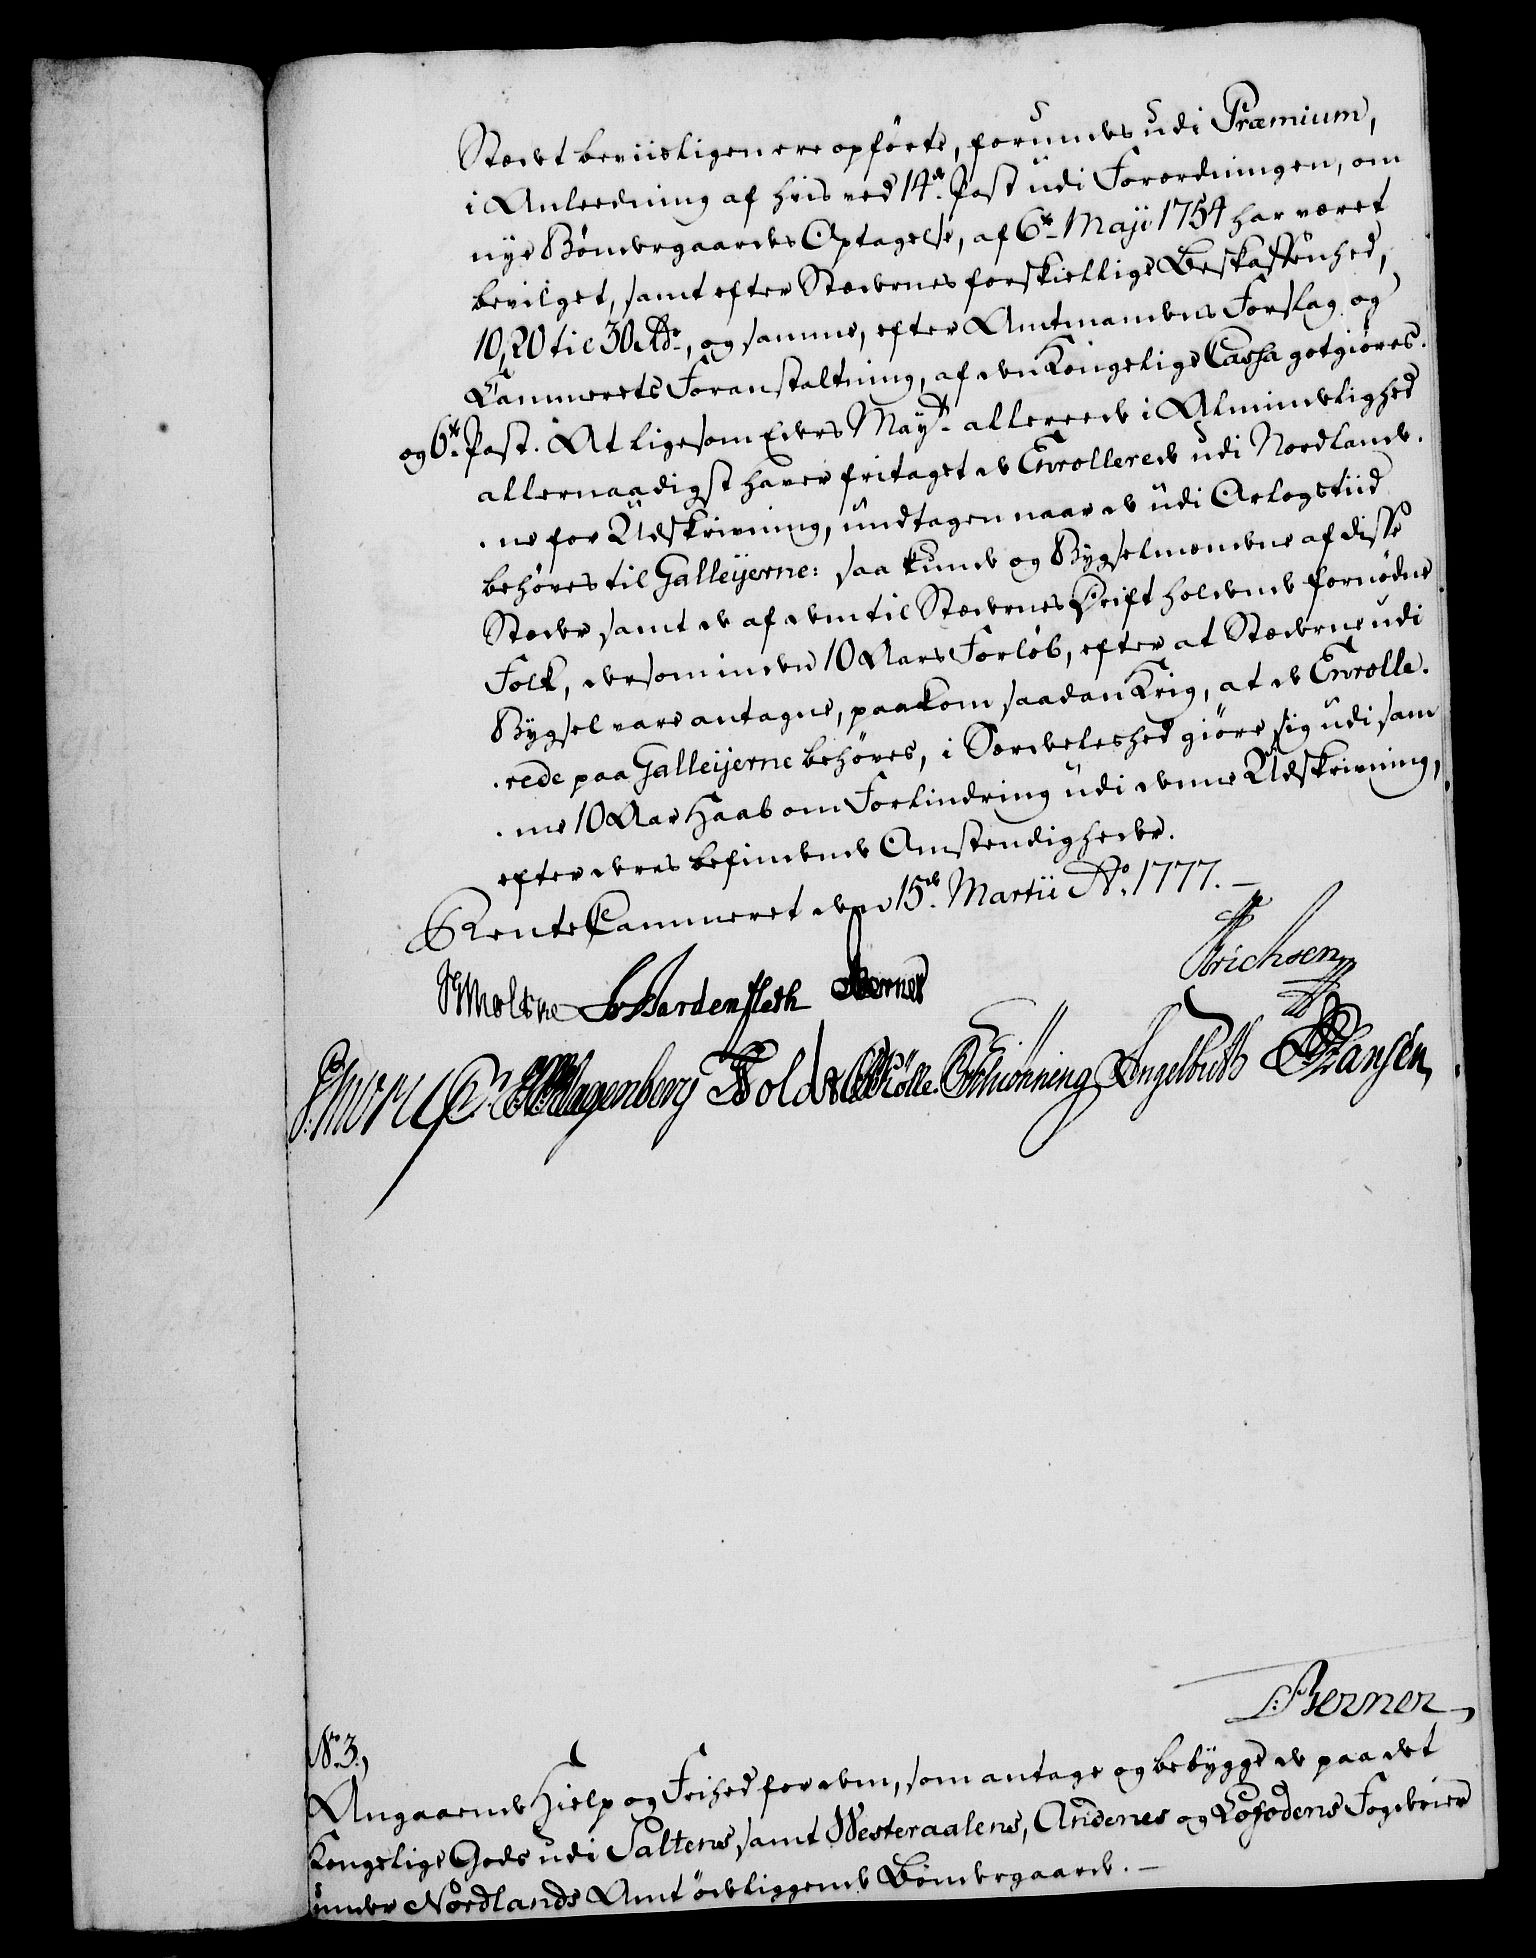 Stædet beviisligen ere opførte, forundes udi Præmium,
i Anleedning af hvis ved 14de Post udi Forordningen, om
nye Bøndergaardes Optagelse, af 6te Maji 1754 har været
bevilget, samt efter Stædernes forskiellige Beskaffenhed,
10, 20 til 30 Rdr, og samme, efter Amtmandens Forslag og
Kammerets Foranstaltning, af den Kongelige Cassa gotgiøres.
og 6te Post. At ligesom Eders Mayt allereede i Almindelighed
allernaadigst haver fritaget de Enrollerede udi Nordland-
-ne for Udskrivning, undtagen naar de udi Orlogstiid
behøves til Galleijerne: saa kunde og Bygselmændene af disse
Stæder samt de af dem til Stædernes Drift holdende fornødne
Folk, dersom inden 10 Aars Forløb, efter at Stæderne udi
Bygsel vare antagne, paakom saadan Krig, at de Enrolle-
-rede paa Galleijerne behøves, i Særdeleshed giøre sig udi sam-
-me 10 Aar Haab om Forlindring udi denne Udskrivning,
efter deres befindende Omstændigheder.
RenteKammeret den 15de Martii Ao. 1777.
Erichsen
Moltke Hardenfleth Berner
Wagenberg Hold Rølle Schiønning Engelbreth Hansen
Berner
No 3,
Angaaende Hielp og Frihed for dem, som antage og bebygge de paa det
Kongelige Gods udi Saltens samt Westeraalens, Andenes og Lofodens Fogderier
under Nordlands Amt ödeliggende Bøndergaarde.